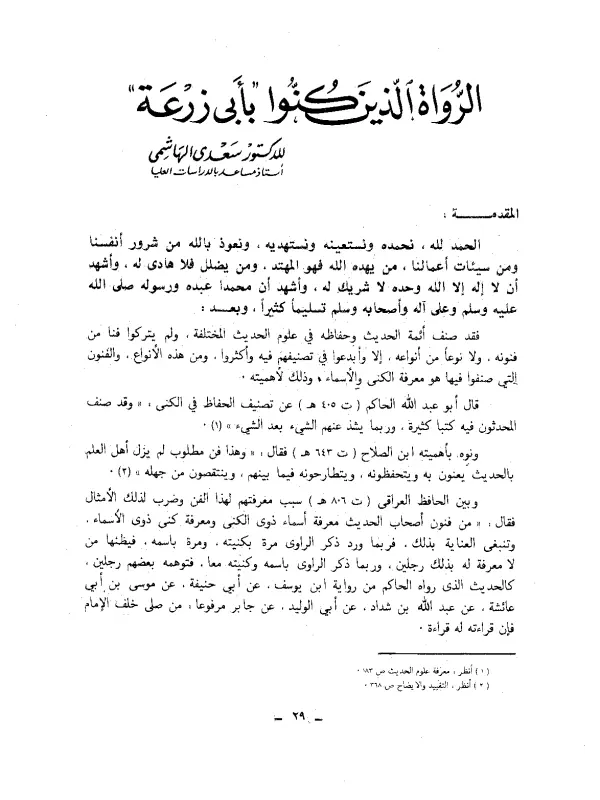 الرواة الذين كنوا "بأبي زرعة"
للدكتور سعدي الهاشمي
أستاذ مساعد بالدراسات العليا
المقدمـــــــة :
الحمد لله ، نحمده ونستعينه ونستهديه ، ونعوذ بالله من شرور أنفسنا
ومن سيئات أعمالنا ، من يهده الله فهو المهتد ، ومن يضلل فلا هادى له ، وأشهد
أن لا إله إلا الله وحده لا شريك له ، وأشهد أن محمدا عبده ورسوله صلى الله
عليه وسلم وعلى آله وأصحابه وسلم تسليماً كثيراً ، وبعـــد :
فقد صنف أئمة الحديث وحفاظه في علوم الحديث المختلفة ، ولم يتركوا فنا من
فنونه ، ولا نوعاً من أنواعه ، إلا وأبدعوا في تصنيفهم فيه وأكثروا ، ومن هذه الأنواع ، والفنون
التي صنفوا فيها هو معرفة الكنى والأسماء ، وذلك لأهميته ٠
قال أبو عبد الله الحاكم ( ت ٤٠٥ هـ ) عن تصنيف الحفاظ في الكنى ، « وقد صنف
المحدثون فيه كتبا كثيرة ، وربما يشذ عنهم الشيء بعد الشيء » (١) ٠
ونوه بأهميته ابن الصلاح ( ت ٦٤٣ هـ ) فقال ، « وهذا فن مطلوب لم يزل أهل العلم
بالحديث يعنون به ويتحفظونه ، ويتطارحونه فيما بينهم ، وينتقصون من جهله » (٢) ٠
وبين الحافظ العراقي ( ت ٨٠٦ هـ ) سبب معرفتهم لهذا الفن وضرب لذلك الأمثال
فقال ، « من فنون أصحاب الحديث معرفة أسماء ذوى الكنى ومعرفة كنى ذوى الأسماء ،
وتنبغى العناية بذلك ، فربما ورد ذكر الراوى مرة بكنيته ، ومرة باسمه ، فيظنها من
لا معرفة له بذلك رجلين ، وربما ذكر الراوى باسمه وكنيته معا ، فتوهمه بعضهم رجلين ،
كالحديث الذى رواه الحاكم من رواية ابن يوسف ، عن أبي حنيفة ، عن موسى بن أبي
عائشة ، عن عبد الله بن شداد ، عن أبي الوليد ، عن جابر مرفوعا ، من صلى خلف الإمام
فإن قراءته له قراءة ٠
(١) أنظر ، معرفة علوم الحديث ص ١٨٣ ٠
(٢) أنظر ، التقييد والايضاح ص ٣٦٨ ٠
– ٢٩ –